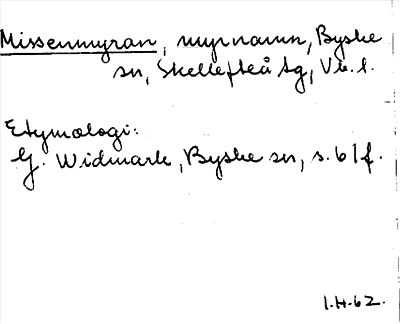 Missenmyran, myrnamn, Byske
sn, Skellefteå tg, Vb. l.
Etymologi:
G. Widmark, Byske sn, s. 61 f.
1.H.62.